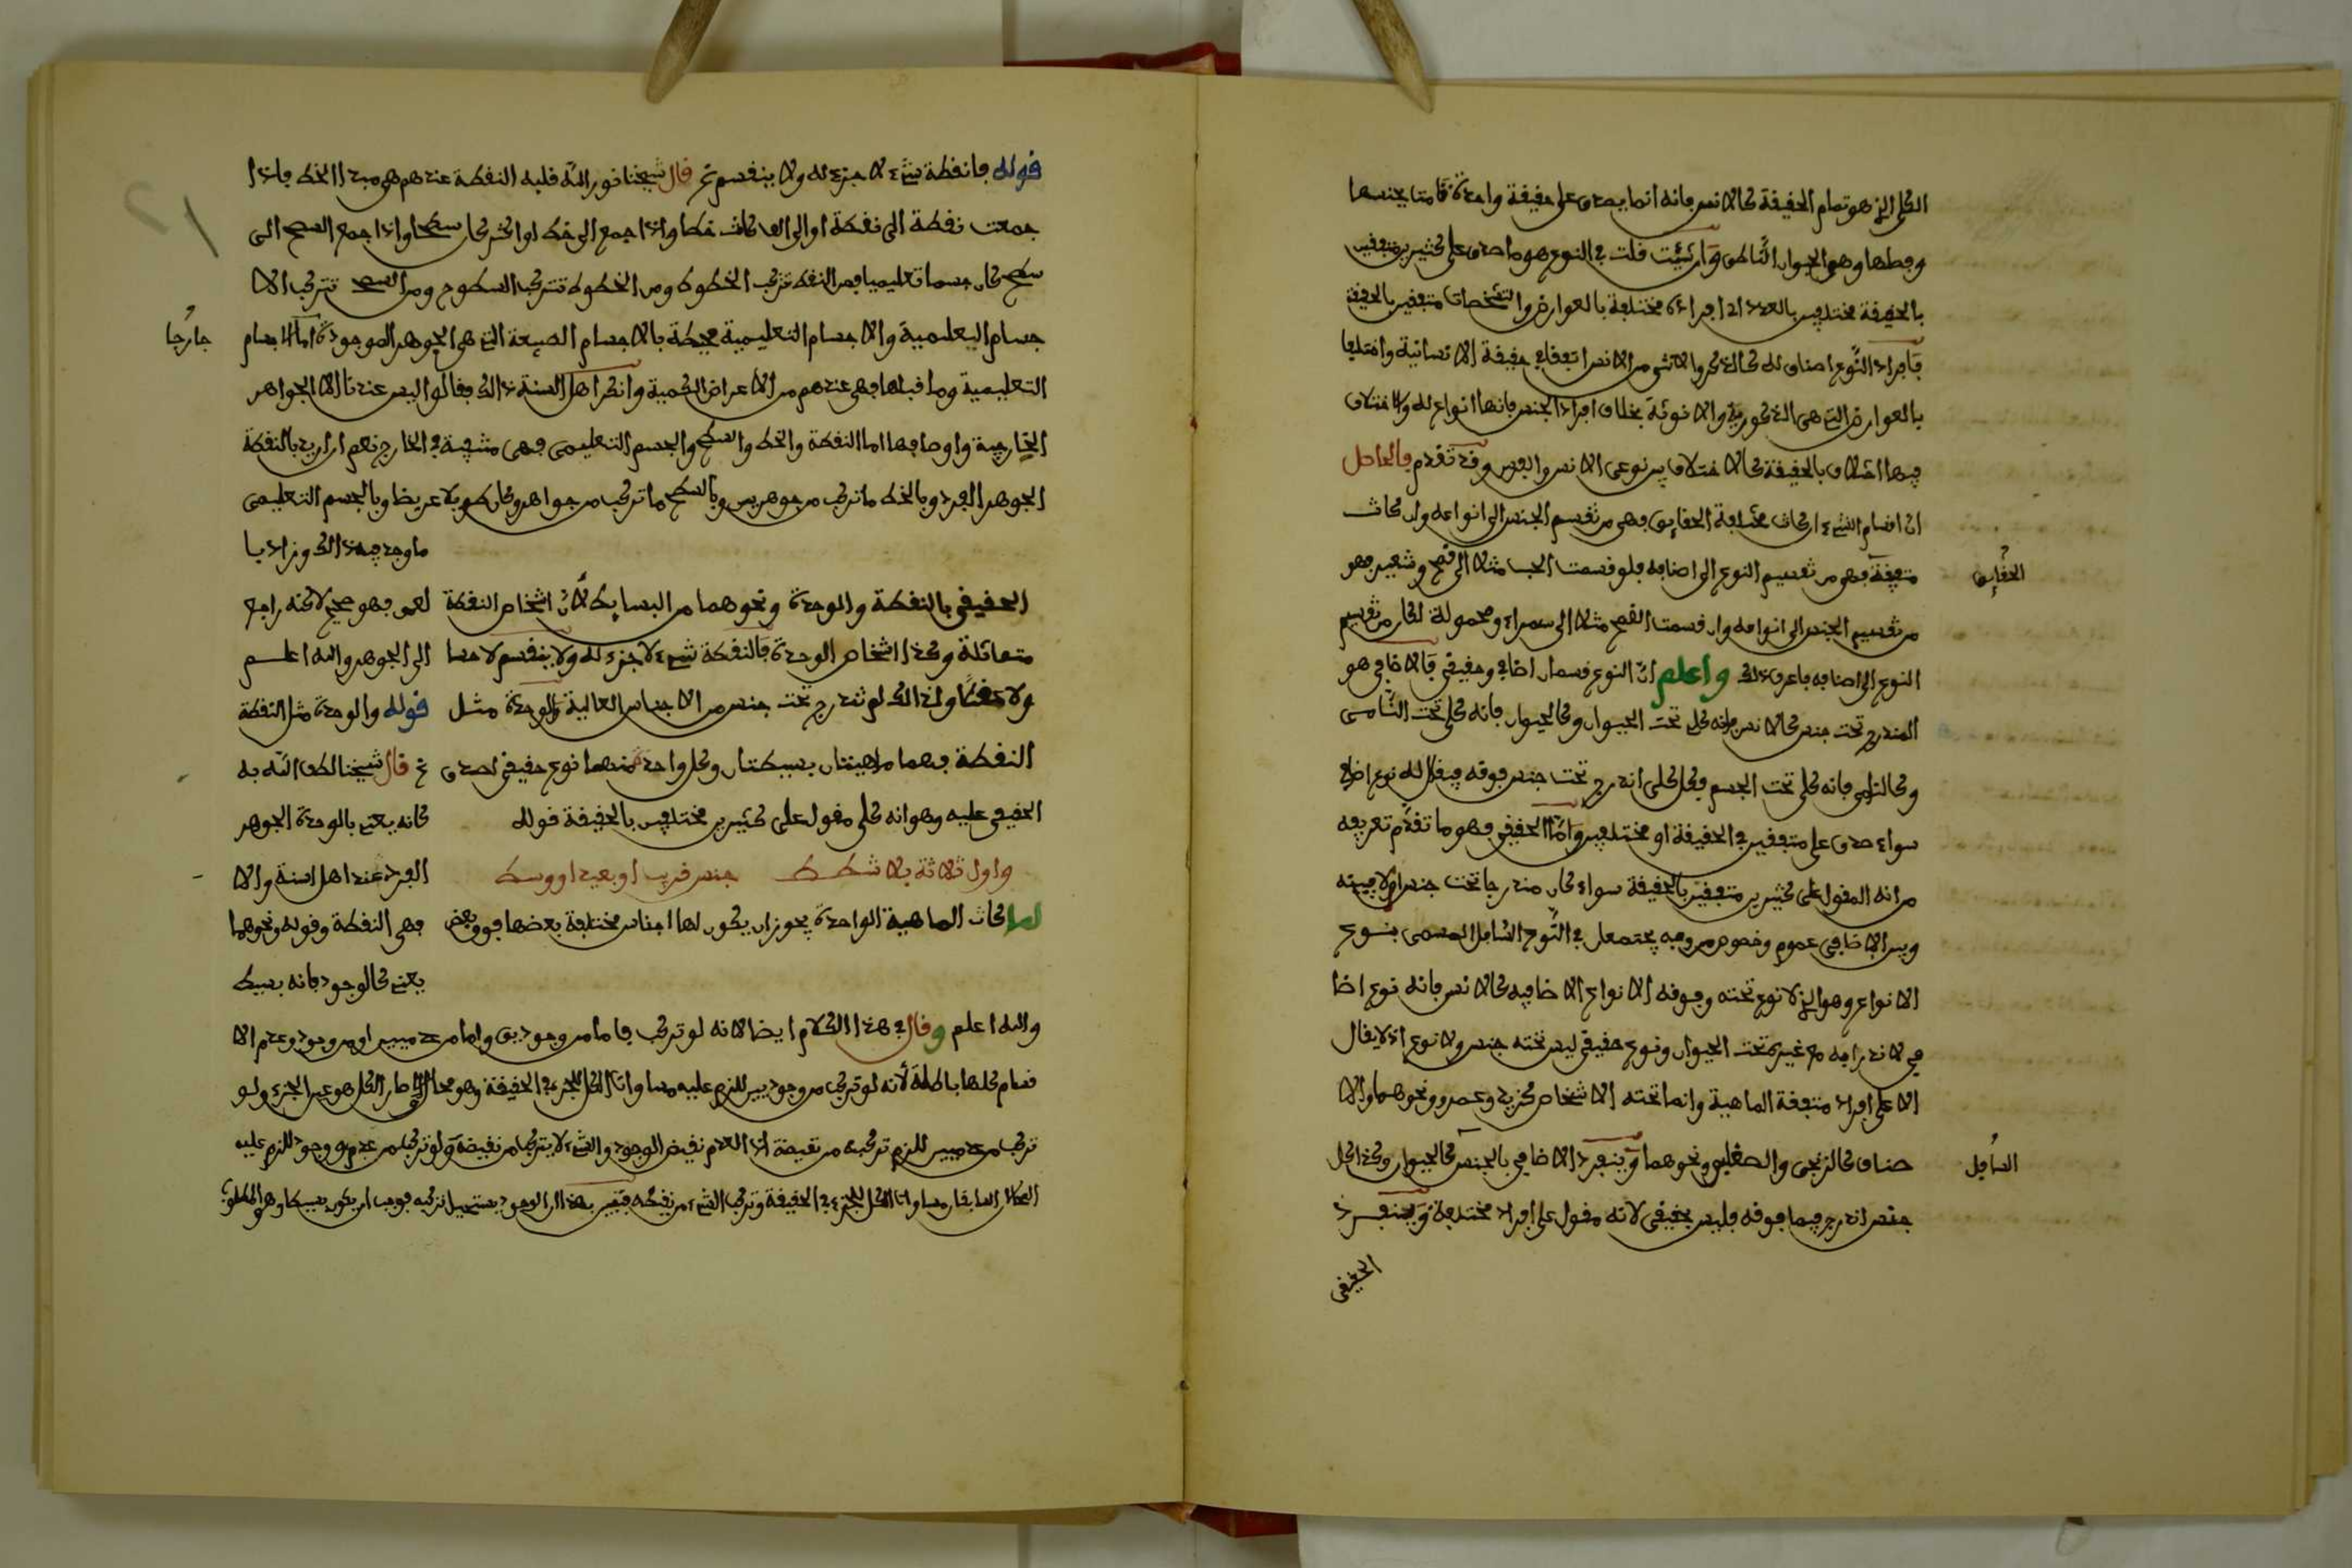 الكلي الذي هو تمام الحقيقة كالانس فانه انما يصدق على حقيقة واحدة قامتا بجنسها
وفصلها وهو الحيوان الناطق وان شئت قلت في النوع هو ما صدق على كثيرين متفقين
بالحقيقة مختلفين بالعدد اي افراده مختلفة بالعوارض والتشخصات متفقين بالحقيقة
فافراد النوع اصناف له كالذكر والانثى من الانس اتفقا في حقيقة الانسانية واختلفا
بالعوارض التي هي الذكورية والانوثة بخلاف افراد الجنس فانها انواع له والاختلاف
فيها اختلاف بالحقيقة كالاختلاف بين نوعي الانس والفرس وقد تقدم فالحاصل
ان اقسام الشيء ان كانت مختلفة الحقايق فهي من تقسيم الجنس الى انواعه وان كانت
متفقة فهو من تقسيم النوع الى اصنافه فلو قسمت الحب مثلا الى قمح وشعير فهو
الحقايق
من تقسيم الجنس الى انواعه وان قسمت القمح مثلا الى سمراء ومحمولة لكان من تقسيم
النوع الى اصنافه فاعرف ذلك واعلم ان النوع قسمان اضافي وحقيقي فالاضافي هو
المندرج تحت جنس كالانس فانه كلي تحت الحيوان وكالحيوان فانه كلي تحت النامي
وكالنامي فانه كلي تحت الجسم فكل كلي اندرج تحت جنس فوقه فيقال له نوع اضافي
سواء صدق على متفقين في الحقيقة او مختلفين واما الحقيقي فهو ما تقدم تعريفه
من انه المقول على كثيرين متفقين بالحقيقة سواء كان مندرجا تحت جنس اولا فبينه
وبين الاضافي عموم وخصوص من وجه يجتمعان في النوع السافل المسمى بنوع
الانواع وهو الذي لا نوع تحته وفوقه الانواع الاضافيه كالانس فانه نوع اضا
في لاندراجه مع غيره تحت الحيوان ونوع حقيقي ليس تحته جنس ولا نوع اذ لا يقال
الا على افراد متفقة الماهية وانما تحته الاشخاص كزيد وعمرو ونحوهما والا
صناف كالزنجي والصقلبي ونحوهما وينفرد الاضافي بالجنس كالحيوان وكذا كل
السافل
جنس اندرج فيما فوقه فليس بحقيقي لانه مقول على افراد مختلفة وينفرد
الحقيقي
قوله فانقطة شيء لا جزء له ولا ينقسم تم قال شيخنا نور الله قلبه النقطة عندهم هي مبدا الخط فاذا
جمعت نقطة الى نقطة او الى الف كانت خطا واذا جمع الى خط او اكثر كان سطحا واذا جمع السطح الى
سطح كان جسما تعليميا فمن النقط تتركب الخطوط ومن الخطوط تتركب السطوح ومن السطح تتركب الا
جسام التعلمية والاجسام التعليمية محيطة بالاجسام الطبيعة التي هي الجوهر الموجودة اما الاجسام
خارجا
التعليمية وما قبلها فهي عندهم من الاعراض الكمية وانكر اهل السنة ذالك فقالوا ليس عندنا الا الجواهر
الخارجية واوصافها اما النقطة والخط والسطح والجسم التعليمي فهي منتفية في الخارج نعم ان اريد بالنقطة
الجوهر الفرد وبالخط ما تركب من جوهرين وبالسطح ما تركب من جواهر وكان طويلا عريضا وبالجسم التعليمي
ما وجد فيه ذالك وزاد با
الحقيقي بالنقطة والوحدة ونحوهما من البسايط لان اشخاص النقطة لعمق فهو صحيح لاكنه راجع
متماثلة وكذا اشخاص الوحدة فالنقطة شيء لا جزء له ولا ينقسم لا حسا الى الجوهر والله اعلم
ولا عقلا ولذالك لم تندرج تحت جنس من الاجناس العالية والوحدة مثل قوله والوحدة مثل النقطة
النقطة فهما ماهيتان بسيطتان وكل واحدة منهما نوع حقيقي لصدق تم قال شيخنا لطف الله به
الحقيقي عليه وهو انه كلي مقول على كثيرين مختلفين بالحقيقة قوله كانه يعني بالوحدة الجوهر
واول ثلاثة بلا شطط جنس قريب او بعيد او وسط الفرد عند اهل السنة والا
لما كانت الماهية الواحدة يجوز ان يكون لها اجناس مختلفة بعضها فوق بعض فهي النقطة وقوله ونحوهما
يعني كالوجود فانه بسيط
والله اعلم وقال في هذا الكلام ايضا لانه لو تركب فاما من وجودين واما من عدميين او من وجود وعدم الا
قسام كلها باطلة لانه لو تركب من وجوديين للزم عليه مساوات الكل للجزء في الحقيقة وهو محال اذ صار الكل هو عين الجزء ولو
تركب من عدميين للزم تركيبه من نقيضه اذ العدم نقيض الوجود والشيء لا يتركب من نقيضه ولو تركب من عدم ووجود للزم عليه
المحالان السابقان مساوات الكل للجزء في الحقيقة وتركب الشيء من نقيضه فتبين بهذا ان الوجود يستحيل تركيبه فوجب ان يكون بسيطا وهو المطلوب